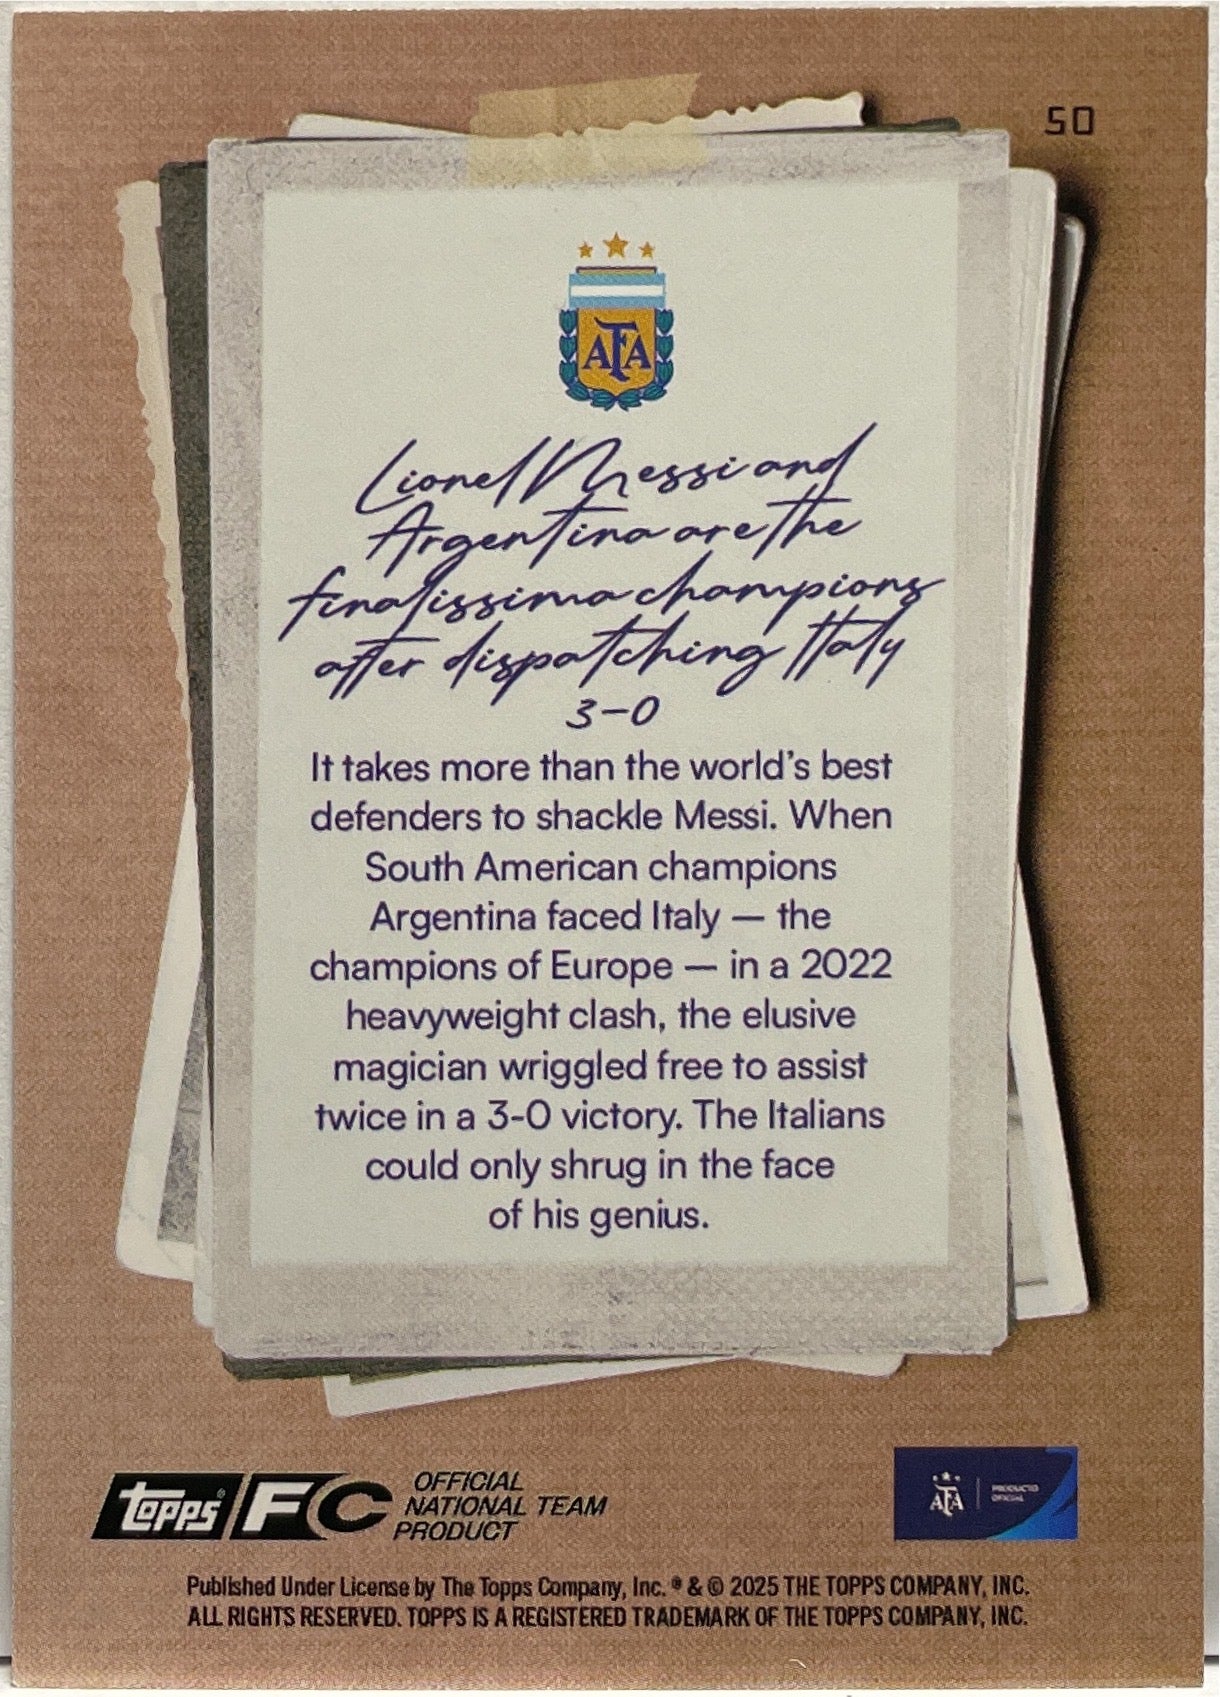 50
AFA
Lionel Messi and
Argentina are the
finalissima champions
after dispatching Italy
3-0
It takes more than the world's best
defenders to shackle Messi. When
South American champions
Argentina faced Italy — the
champions of Europe — in a 2022
heavyweight clash, the elusive
magician wriggled free to assist
twice in a 3-0 victory. The Italians
could only shrug in the face
of his genius.
topps® FC
OFFICIAL
NATIONAL TEAM
PRODUCT
AFA
PRODUCTO
OFICIAL
Published Under License by The Topps Company, Inc. ® & © 2025 THE TOPPS COMPANY, INC.
ALL RIGHTS RESERVED. TOPPS IS A REGISTERED TRADEMARK OF THE TOPPS COMPANY, INC.